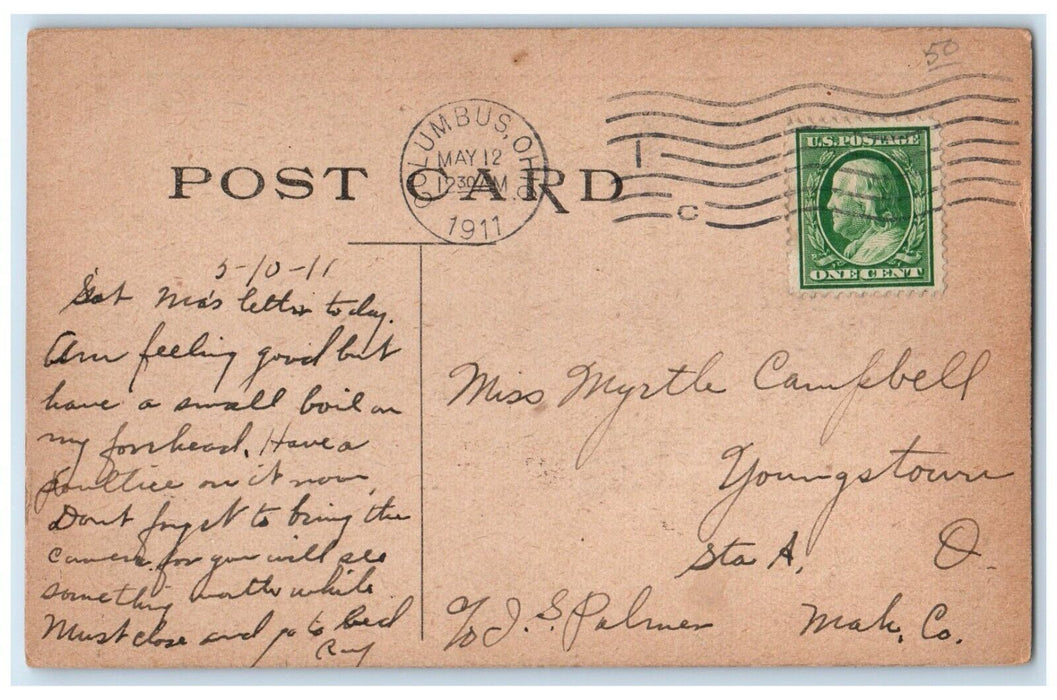 50
COLUMBUS, OHIO
MAY 12
1230 AM
1911
1
C
U.S. POSTAGE
ONE CENT
POST CARD
5-10-11
Got Ma's letter today.
Am feeling good but
have a small boil on
my forehead. Have a
poultice on it now.
Dont forget to bring the
camera for you will see
something worth while
Must close and go to bed
Miss Myrtle Campbell
Youngstown
Sta A, O.
℅ J. S. Palmer Mah. Co.